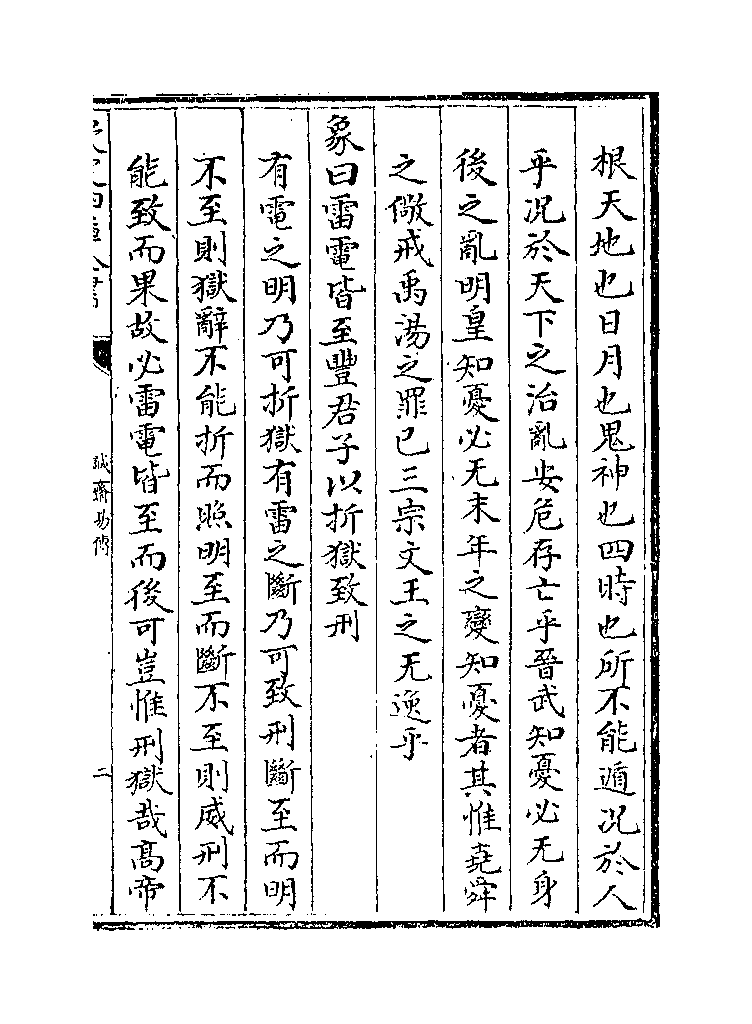 根天地也日月也鬼神也四時也所不能遁况於人
乎况於天下之治亂安危存亡乎晉武知憂必无身
後之亂明皇知憂必无末年之變知憂者其惟堯舜
之儆戒禹湯之罪已三宗文王之无逸乎
象曰雷電皆至豐君子以折獄致刑
有電之明乃可折獄有雷之斷乃可致刑斷至而明
不至則獄辭不能折而照明至而斷不至則威刑不
能致而果故必雷電皆至而後可豈惟刑獄哉髙帝
誠齋易傳
二